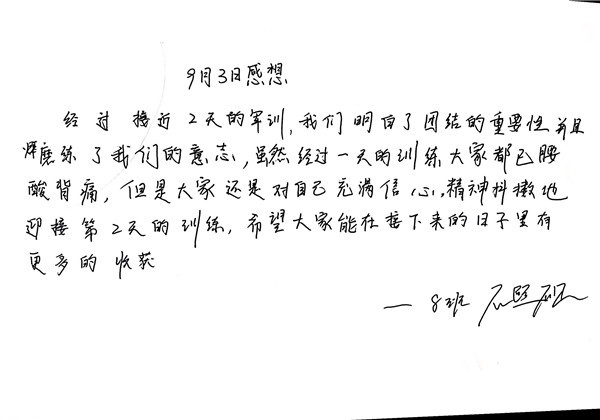 9月3日感想
经过接近2天的军训,我们明白了团结的重要性并且
磨练了我们的意志,虽然经过一天的训练大家都已腰
酸背痛,但是大家还是对自己充满信心,精神抖擞地
迎接第2天的训练,希望大家能在接下来的日子里有
更多的收获
— 8班